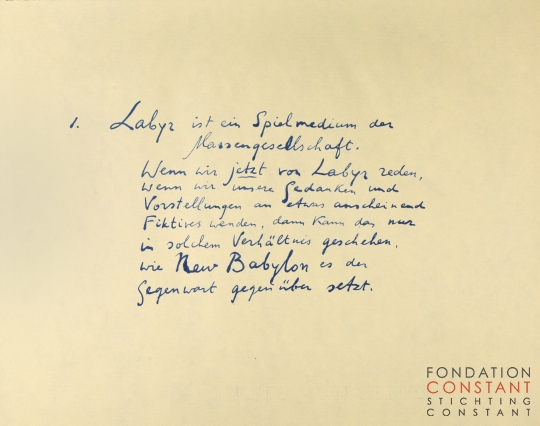 1. Labyr ist ein Spielmedium der
Massengesellschaft.
Wenn wir jetzt von Labyr reden,
wenn wir unsere Gedanken und
Vorstellungen an etwas anscheinend
Fiktives wenden, dann kann das nur
in solchem Verhältnis geschehen,
wie New Babylon es der
Gegenwart gegenüber setzt.
FONDATION
CONSTANT
STICHTING
CONSTANT